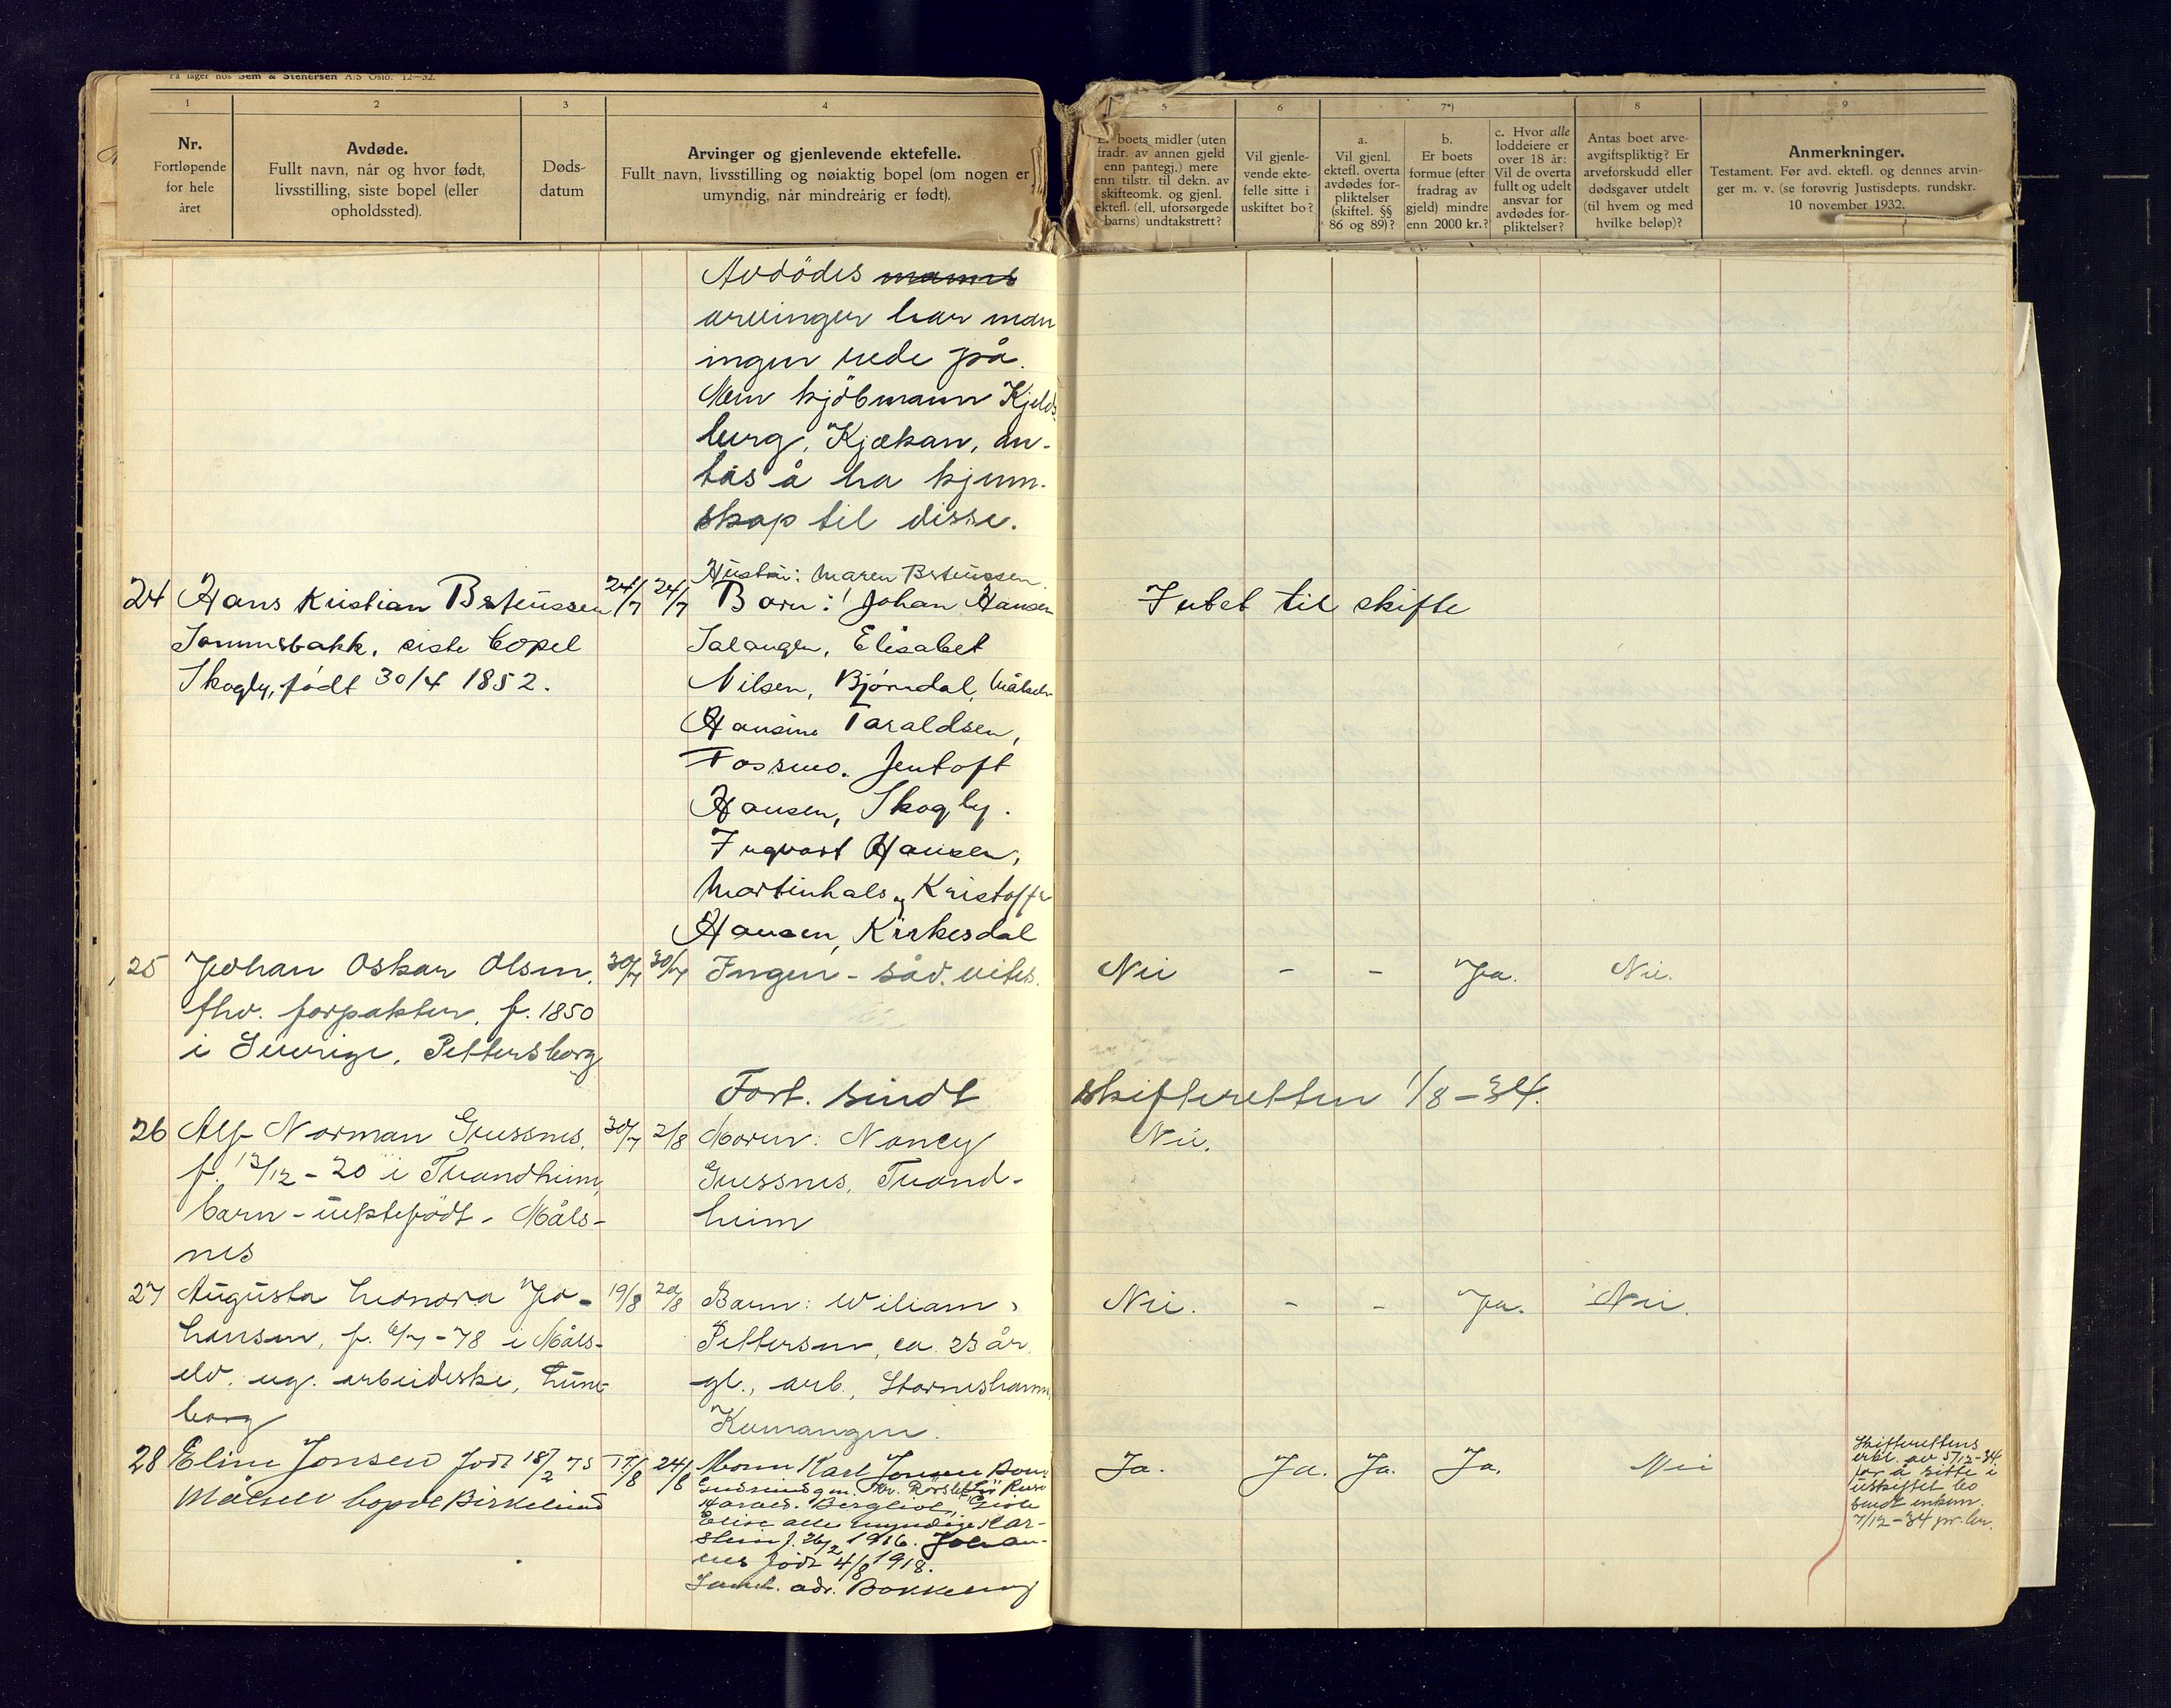 På lager hos Sem & Stenersen A/S Oslo. 12—32.
1
2
3
4
5
6
7*)
8
9
Nr.
Fortløpende
for hele
året
Avdøde.
Fullt navn, når og hvor født,
livsstilling, siste bopel (eller
opholdssted).
Døds-
datum
Arvinger og gjenlevende ektefelle.
Fullt navn, livsstilling og nøiaktig bopel (om nogen er
umyndig, når mindreårig er født).
boets midler (uten
fradr. av annen gjeld
enn pantegj.) mere
enn tilstr. til dekn. av
skifteomk. og gjenl.
ektefl. (ell. uforsørgede
barns) undtakstrett?
Vil gjenle-
vende ekte-
felle sitte i
uskiftet bo?
a.
Vil gjenl.
ektefl. overta
avdødes for-
pliktelser
(skiftel. §§
86 og 89)?
b.
Er boets
formue (efter
fradrag av
gjeld) mindre
enn 2000 kr.?
c. Hvor alle
loddeiere er
over 18 år:
Vil de overta
fullt og udelt
ansvar for
avdødes for-
pliktelser?
Antas boet arve-
avgiftspliktig? Er
arveforskudd eller
dødsgaver utdelt
(til hvem og med
hvilke beløp)?
Anmerkninger.
Testament. Før avd. ektefl. og dennes arvin-
ger m. v. (se forøvrig Justisdepts. rundskr.
10 november 1932.
Avdödes manns
arvinger har man
ingen rede på.
Men kjöbmann Kjelds-
berg, Kjækan, an-
tas å ha kjenn-
skap til disse.
Hustru: Maren Bsteussen.
24 Hans Kristian Bsteussen 24/7 24/7 Barn: Johan Hansen Intet til skifte
Sommerbakk, siste bopel Salangen, Elisabet
Skogly, født 30/4 1852. Nilsen, Bjørndal, Målselv
Hansine Taraldsen,
Fossmo. Jentoft
Hansen, Skogly.
Ingvart Hansen,
Martinhals og Kristoffer
Hansen, Kirkesdal
25 Johan Oskar Olsen, 30/7 30/7 Ingen - såv. vites. Nei - - Ja. Nei.
fhv. forpakter, f. 1850
i Sverige, Pettersborg
Fort. sendt skifteretten 1/8 - 34.
26 Alf Norman Gressnes, 30/7 2/8 Moren: Nancy Nei.
f. 12/12 - 20 i Trondheim, Gressnes, Trond-
barn - uektefödt - Måls- heim
nes
27 Augusta Leonora Jo- 19/8 20/8 Barn: Wiliam Nei. - - Ja. Nei.
hansen, f. 6/7 - 78 i Måls- Pettersen, ca. 23 år
elv. ug. arbeiderske, Lune- gl., arb., Storneshamn,
borg Kvenangen.
28 Eline Jonsen Født 18/2 75 17/8 24/8 Mann Karl Jonsen Barn Ja. Ja. Ja. Ja. Nei
Målselv bopæl Birkelund
Harald. Bergliot,
Elise alle myndige Kar-
stein f. 26/2 1916. Johan-
nes født 4/8 1918.
Saml. adr. Bakkehaug
Skifterettens
erkl. av 5/12-34
for å sitte i
uskiftet bo
sendt enkem.
7/12-34 pr. br.